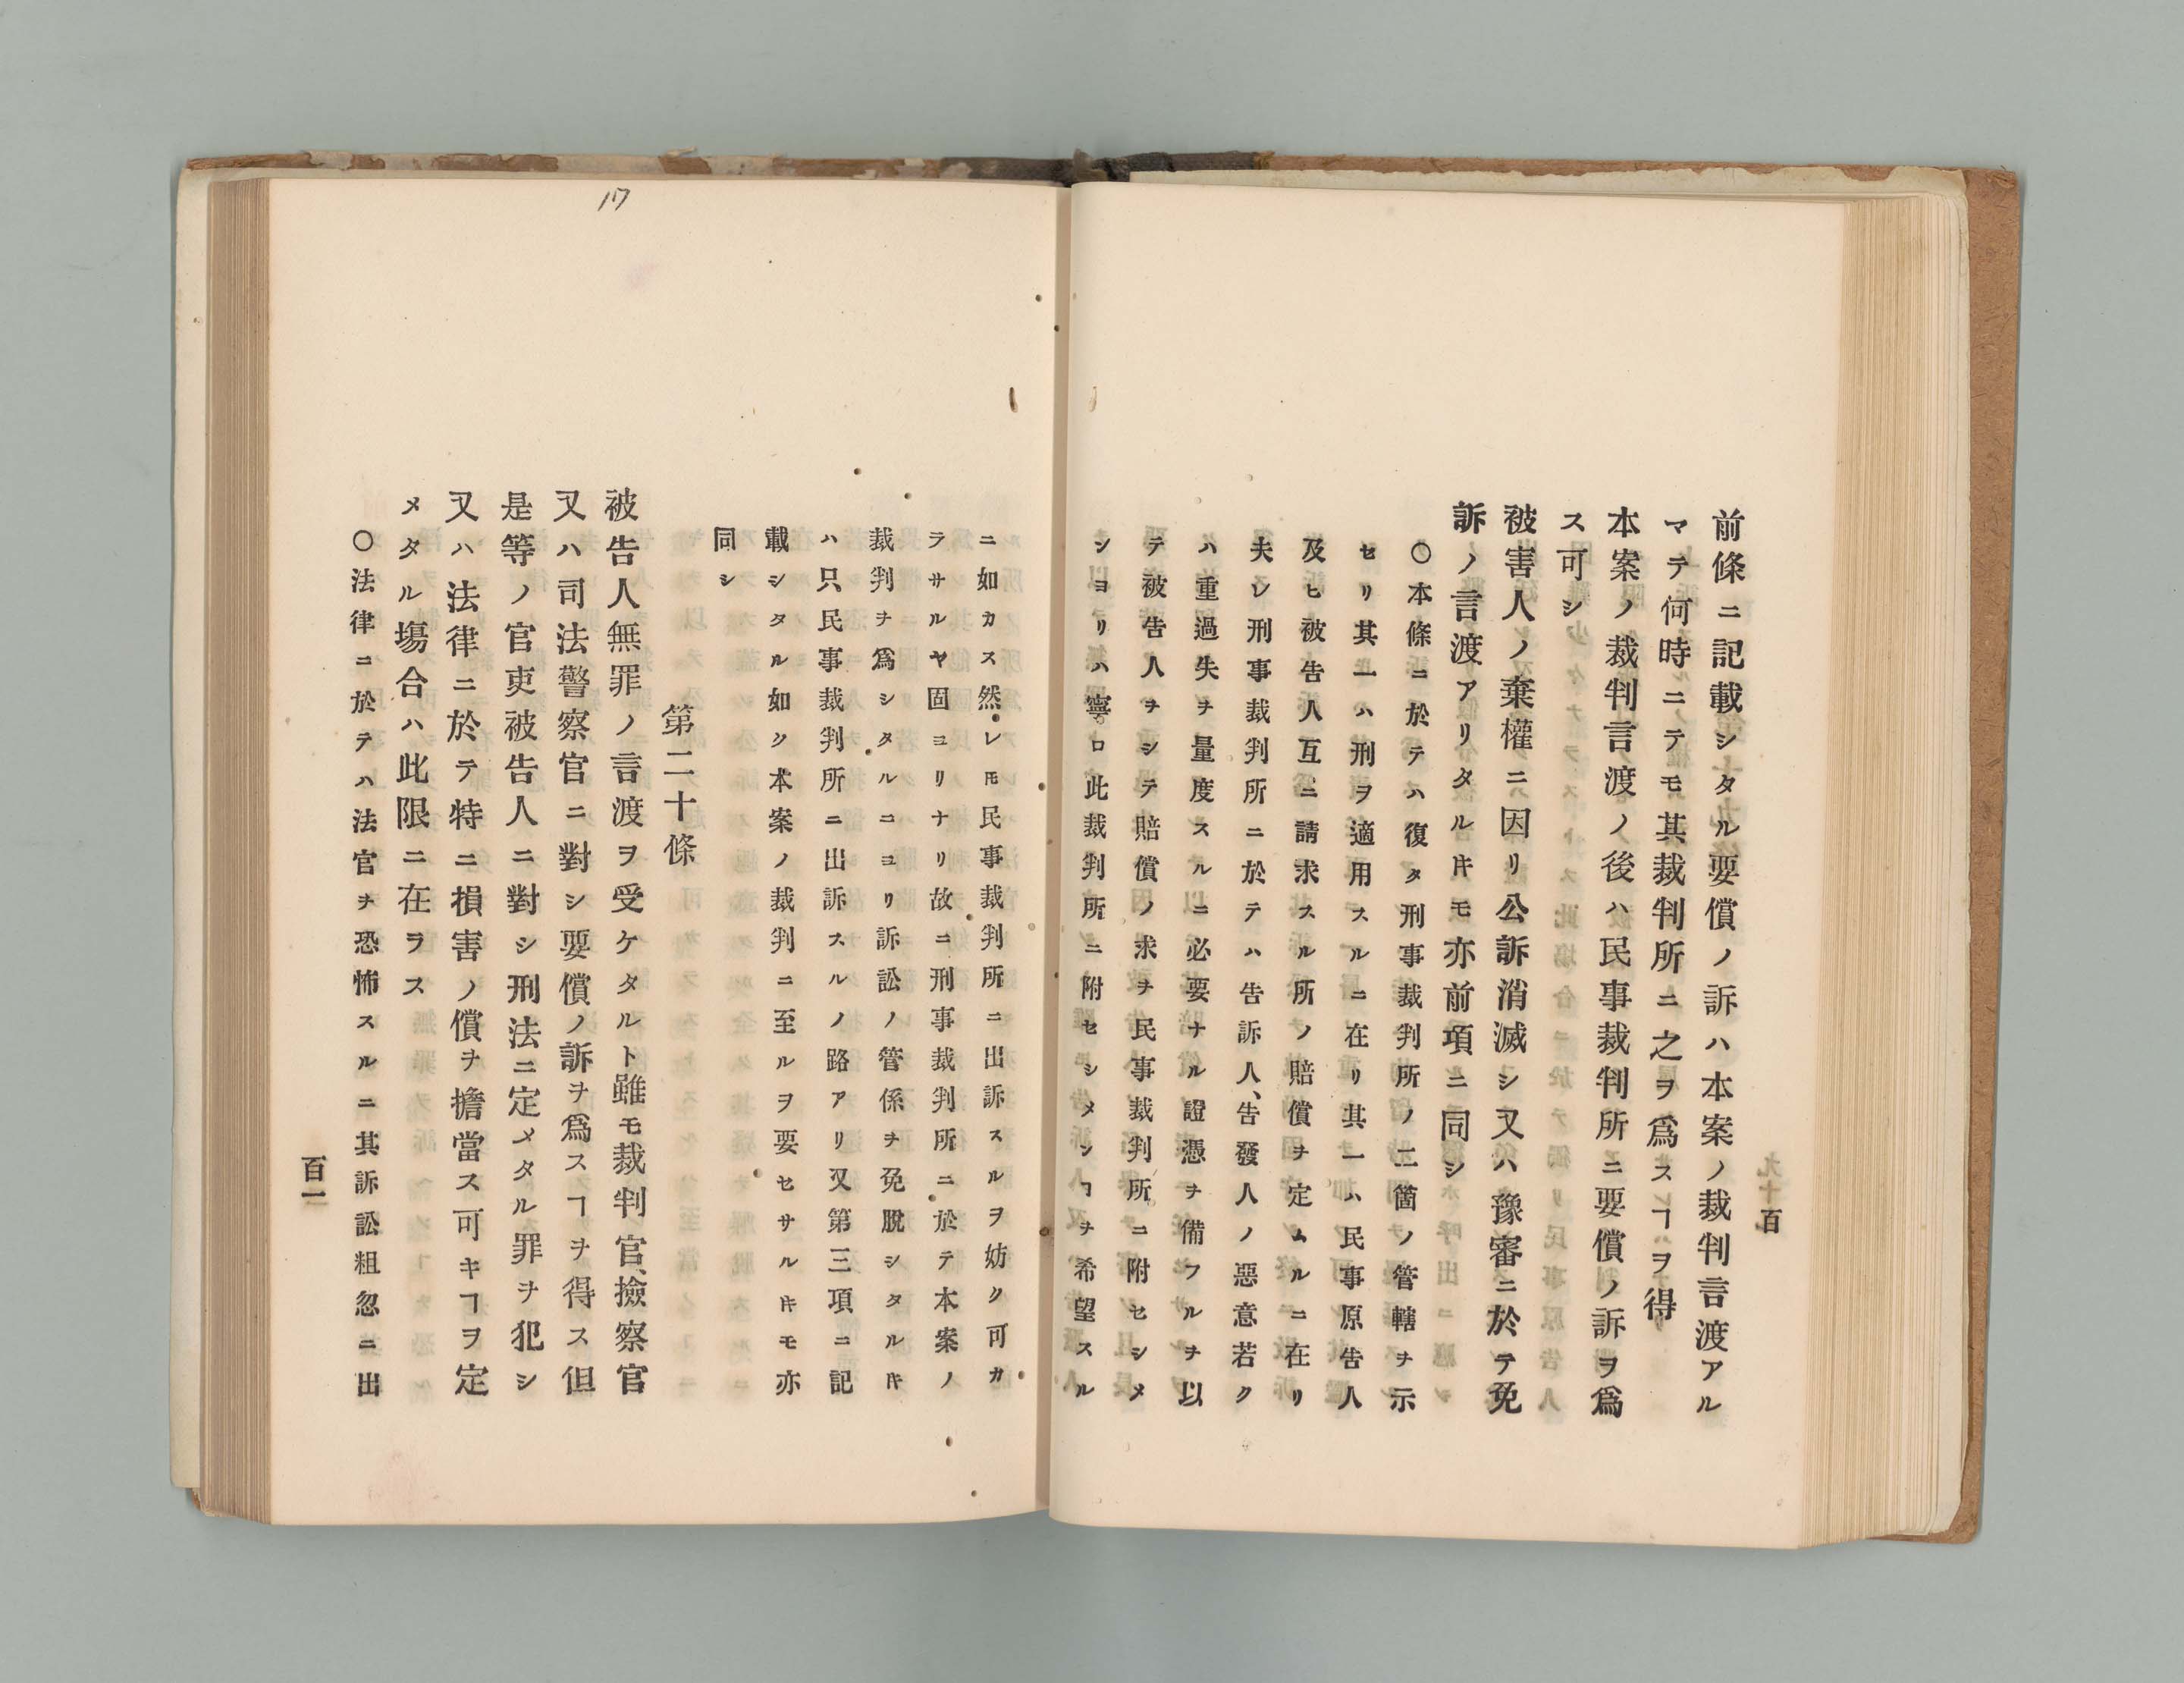 前條ニ記載シタル要償ノ訴ハ本案ノ裁判言渡アル
マテ何時ニテモ其裁判所ニ之ヲ爲スヿヲ得
本案ノ裁判言渡ノ後ハ民事裁判所ニ要償ノ訴ヲ爲
ス可シ
被害人ノ棄權ニ因リ公訴消滅シ又ハ豫審ニ於テ免
訴ノ言渡アリタルキモ亦前項ニ同シ
〇本條ニ於テハ復タ刑事裁判所ノ二箇ノ管轄ヲ示
セリ其一ハ刑ヲ適用スルニ在リ其一ハ民事原告人
及ヒ被告人互ニ請求スル所ノ賠償ヲ定ムルニ在リ
夫レ刑事裁判所ニ於テハ告訴人、告發人ノ惡意若ク
ハ重過失ヲ量度スルニ必要ナル證憑ヲ備フルヲ以
テ被告人ヲシテ賠償ノ求ヲ民事裁判所ニ附セシメ
ンヨリハ寧ロ此裁判所ニ附セシメンヿヲ希望スル
百
ニ如カス然レ𪜈民事裁判所ニ出訴スルヲ妨ク可カ
ラサルヤ固ヨリナリ故ニ刑事裁判所ニ於テ本案ノ
裁判ヲ爲シタルコヨリ訴訟ノ管係ヲ免脫シタルキ
ハ只民事裁判所ニ出訴スルノ路アリ又第三項ニ記
載シタル如ク本案ノ裁判ニ至ルヲ要セサルキモ亦
同シ
第二十條
被告人無罪ノ言渡ヲ受ケタルト雖モ裁判官、檢察官
又ハ司法警察官ニ對シ要償ノ訴ヲ爲スヿヲ得ス但
是等ノ官吏被告人ニ對シ刑法ニ定メタル罪ヲ犯シ
又ハ法律ニ於テ特ニ損害ノ償ヲ擔當ス可キヿヲ定
メタル塲合ハ此限ニ在ラス
〇法律ニ於テハ法官ヲ恐怖スルニ其訴訟粗忽ニ出
百一
17